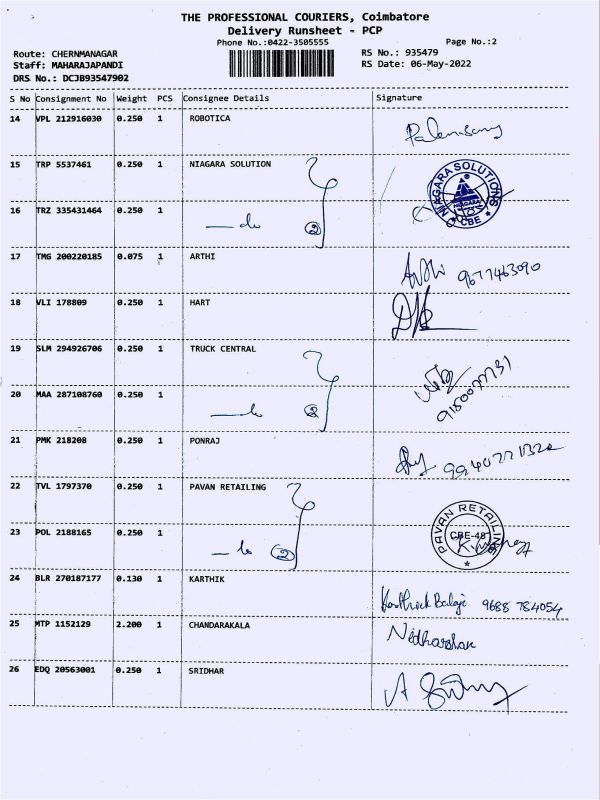 THE PROFESSIONAL COURIERS, Coimbatore
Delivery Runsheet - PCP
Phone No.:0422-3505555
Page No.:2
Route: CHERNMANAGAR
RS No.: 935479
Staff: MAHARAJAPANDI
RS Date: 06-May-2022
DRS No.: DCJB93547902
S No Consignment No Weight PCS Consignee Details Signature
14 VPL 212916030 0.250 1 ROBOTICA
15 TRP 5537461 0.250 1 NIAGARA SOLUTION
NIAGARA SOLUTIONS
NIAGARA
CBE
16 TRZ 335431464 0.250 1 — do 2
17 TMG 200220185 0.075 1 ARTHI
9677463090
18 VLI 178809 0.250 1 HART
19 SLM 294926706 0.250 1 TRUCK CENTRAL
20 MAA 287108760 0.250 1 — do 2
21 PMK 218208 0.250 1 PONRAJ
22 TVL 1797370 0.250 1 PAVAN RETAILING
PAVAN RETAILING
CBE-48
23 POL 2188165 0.250 1 — do 2
24 BLR 270187177 0.130 1 KARTHIK
Karthick Balaji 9688 784054
25 MTP 1152129 2.200 1 CHANDARAKALA
Nidharshan
26 EDQ 20563001 0.250 1 SRIDHAR